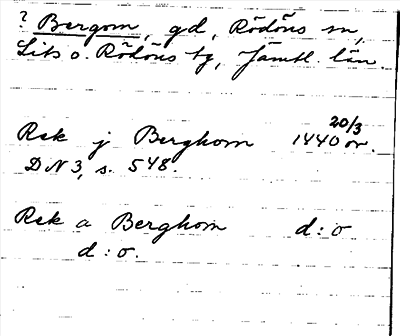 ? Bergom, gd, Rödöns sn,
Lits o. Rödöns tg, Jämtl. län.
20/3
Rek j Berghom 1440 or.
DN 3, s. 548.
Rek a Berghom d:o
d:o.